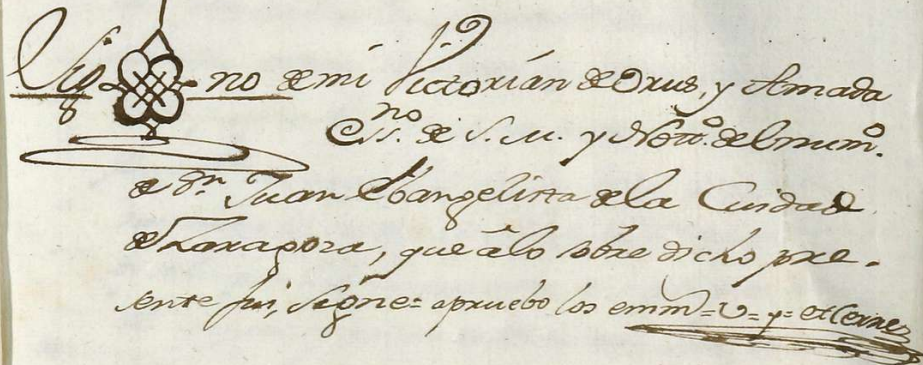 Sig no de mi Victorián de Orus, y Amada
Essno. de S. M. y Noto. del num.o
de Sn. Juan Ebangelista de la Cuidad
de Zaragoza, que à lo sobre dicho pre-
sente fui, signe= apruebo los emm.=